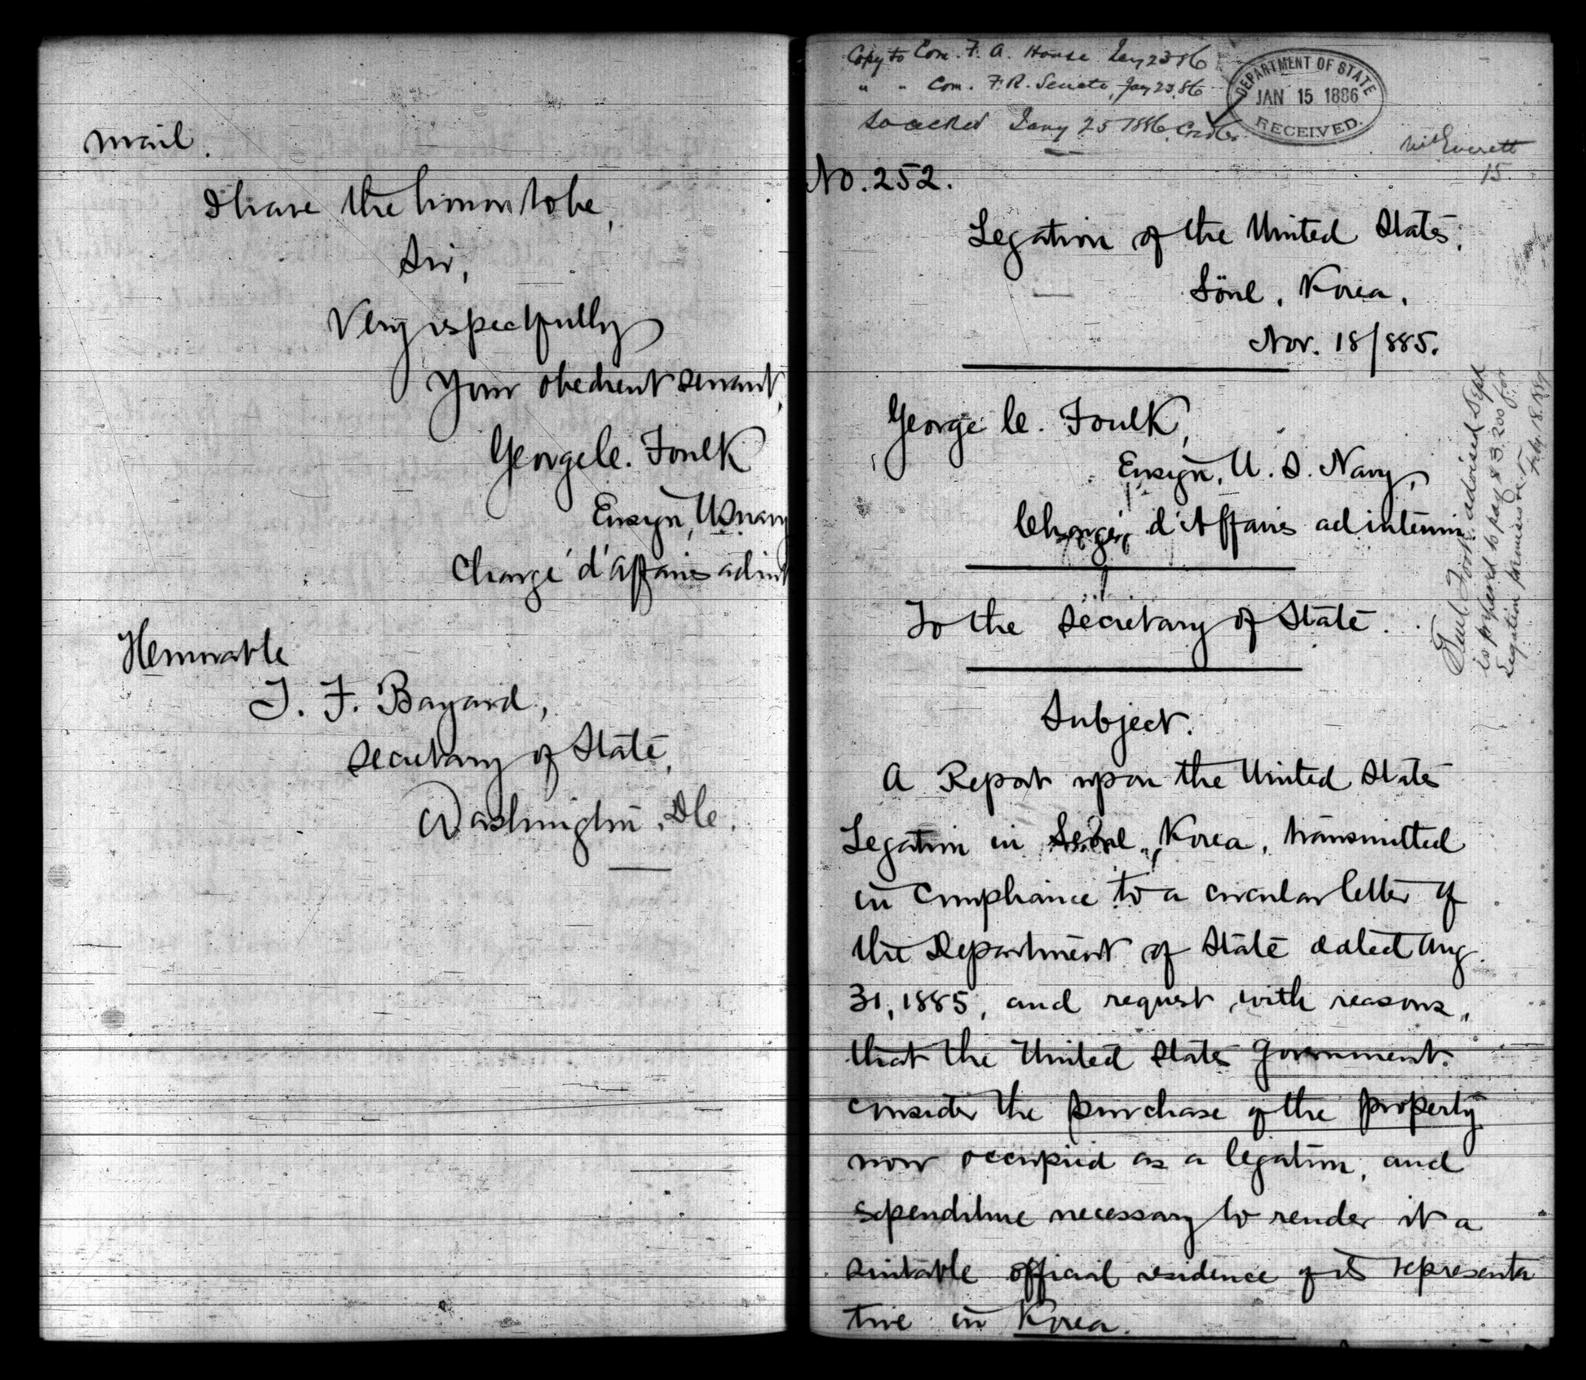 mail.
I have the honor to be,
Sir,
Very respectfully
Your obedient servant,
George C. Foulk
Ensign, US navy
Chargé d'affaires ad int
Honorable
T. F. Bayard,
Secretary of State,
Washington, D.C.
Copy to Com. F. A. House Jany 23 86
" " Com. F. R. Senate, Jany 23, 86
Jany 25 1886
DEPARTMENT OF STATE
JAN 15 1886
RECEIVED.
Everett
15
No. 252.
Legation of the United States,
Söul, Korea,
Nov. 18/885.
George C. Foulk,
Ensign, U. S. Navy,
Chargé d'Affaires ad interim
To the Secretary of State.
Subject.
A Report upon the United States
Legation in Söul, Korea, transmitted
in compliance to a circular letter of
the Department of State dated Aug.
31, 1885, and request, with reasons,
that the United States Government
consider the purchase of the property
now occupied as a legation, and
expenditure necessary to render it a
suitable official residence of its representa
tive in Korea.
advised Sept
is prepared to pay $3,200 for
Legation premises
Feby 18.